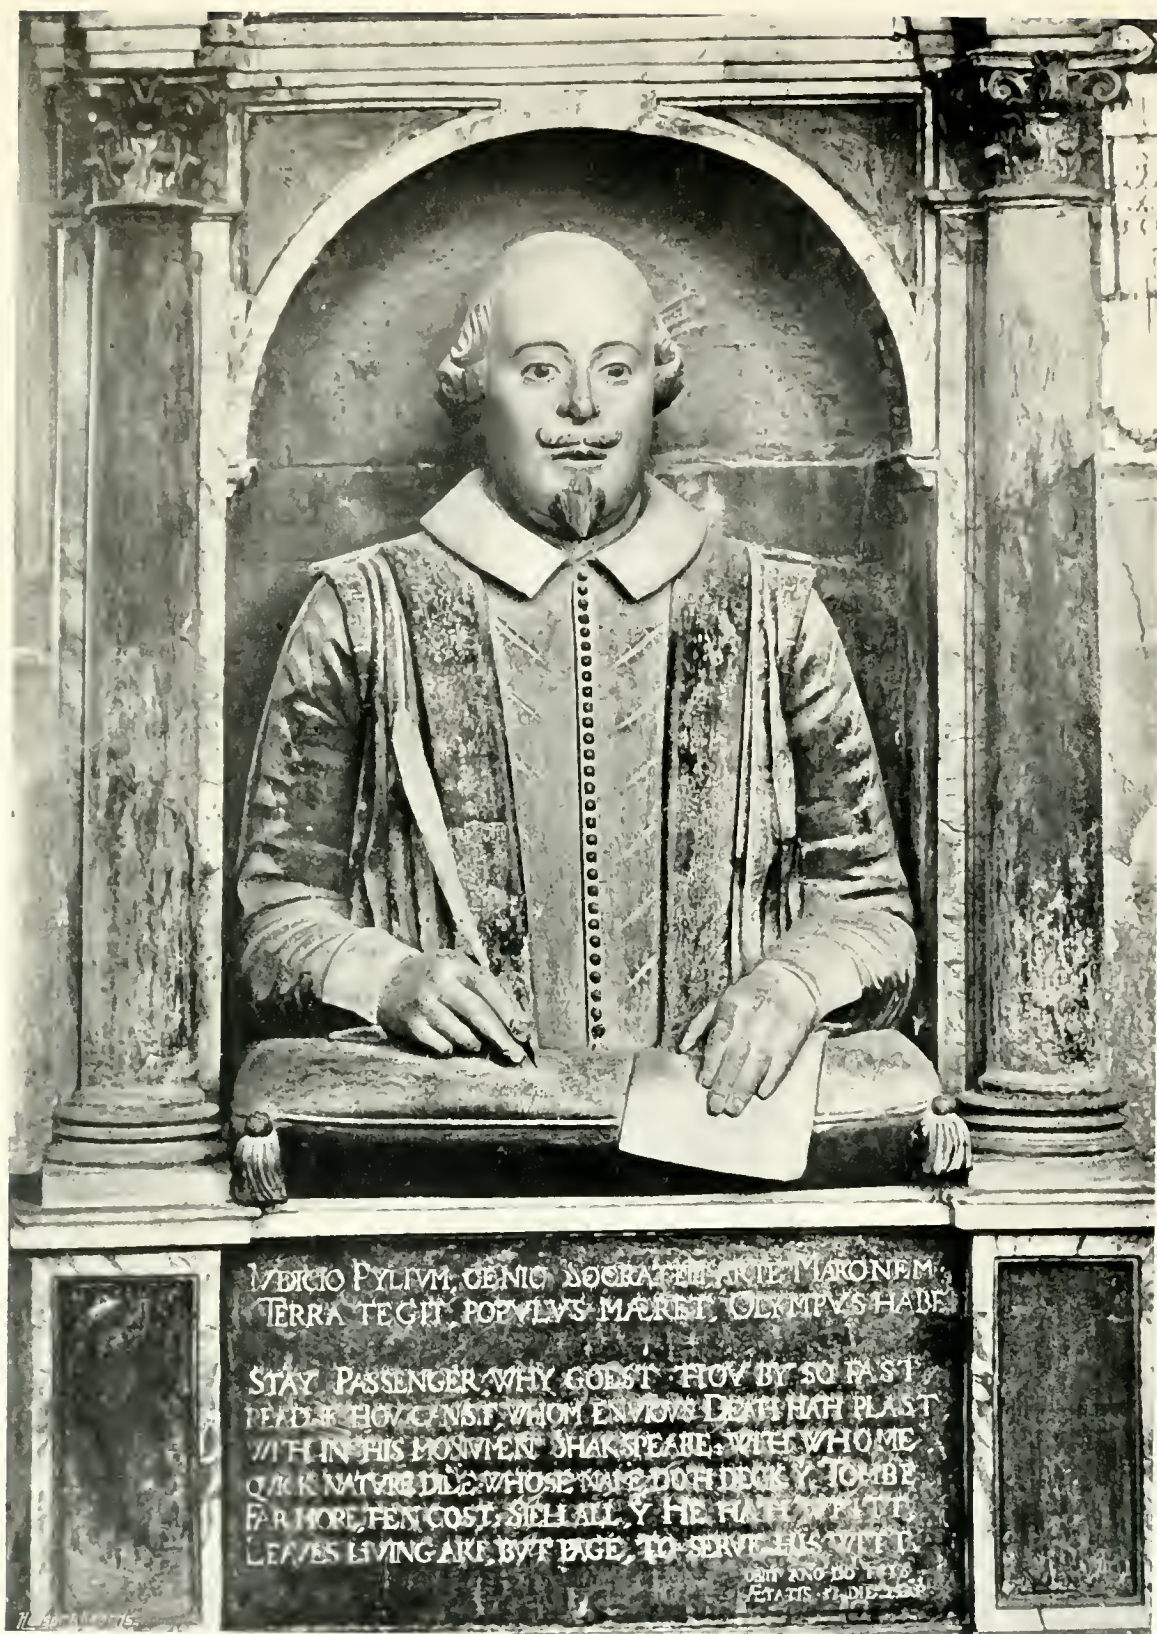 IVDICIO PYLIVM, GENIO SOCRATEM, ARTE MARONEM,
TERRA TEGIT, POPVLVS MÆRET, OLYMPVS HABE
STAY PASSENGER, WHY GOEST THOV BY SO FAST,
READ IF THOV CANST, WHOM ENVIOVS DEATH HATH PLAST
WITH IN THIS MONVMENT SHAKSPEARE: WITH WHOME
QVICK NATVRE DIDE: WHOSE NAME, DOTH DECK Y TOMBE,
FAR MORE, THEN COST: SIEH ALL, Y HE HATH WRITT,
LEAVES LIVING ART, BVT PAGE, TO SERVE HIS WITT.
OBIIT ANO DO 1616
ÆTATIS DIE